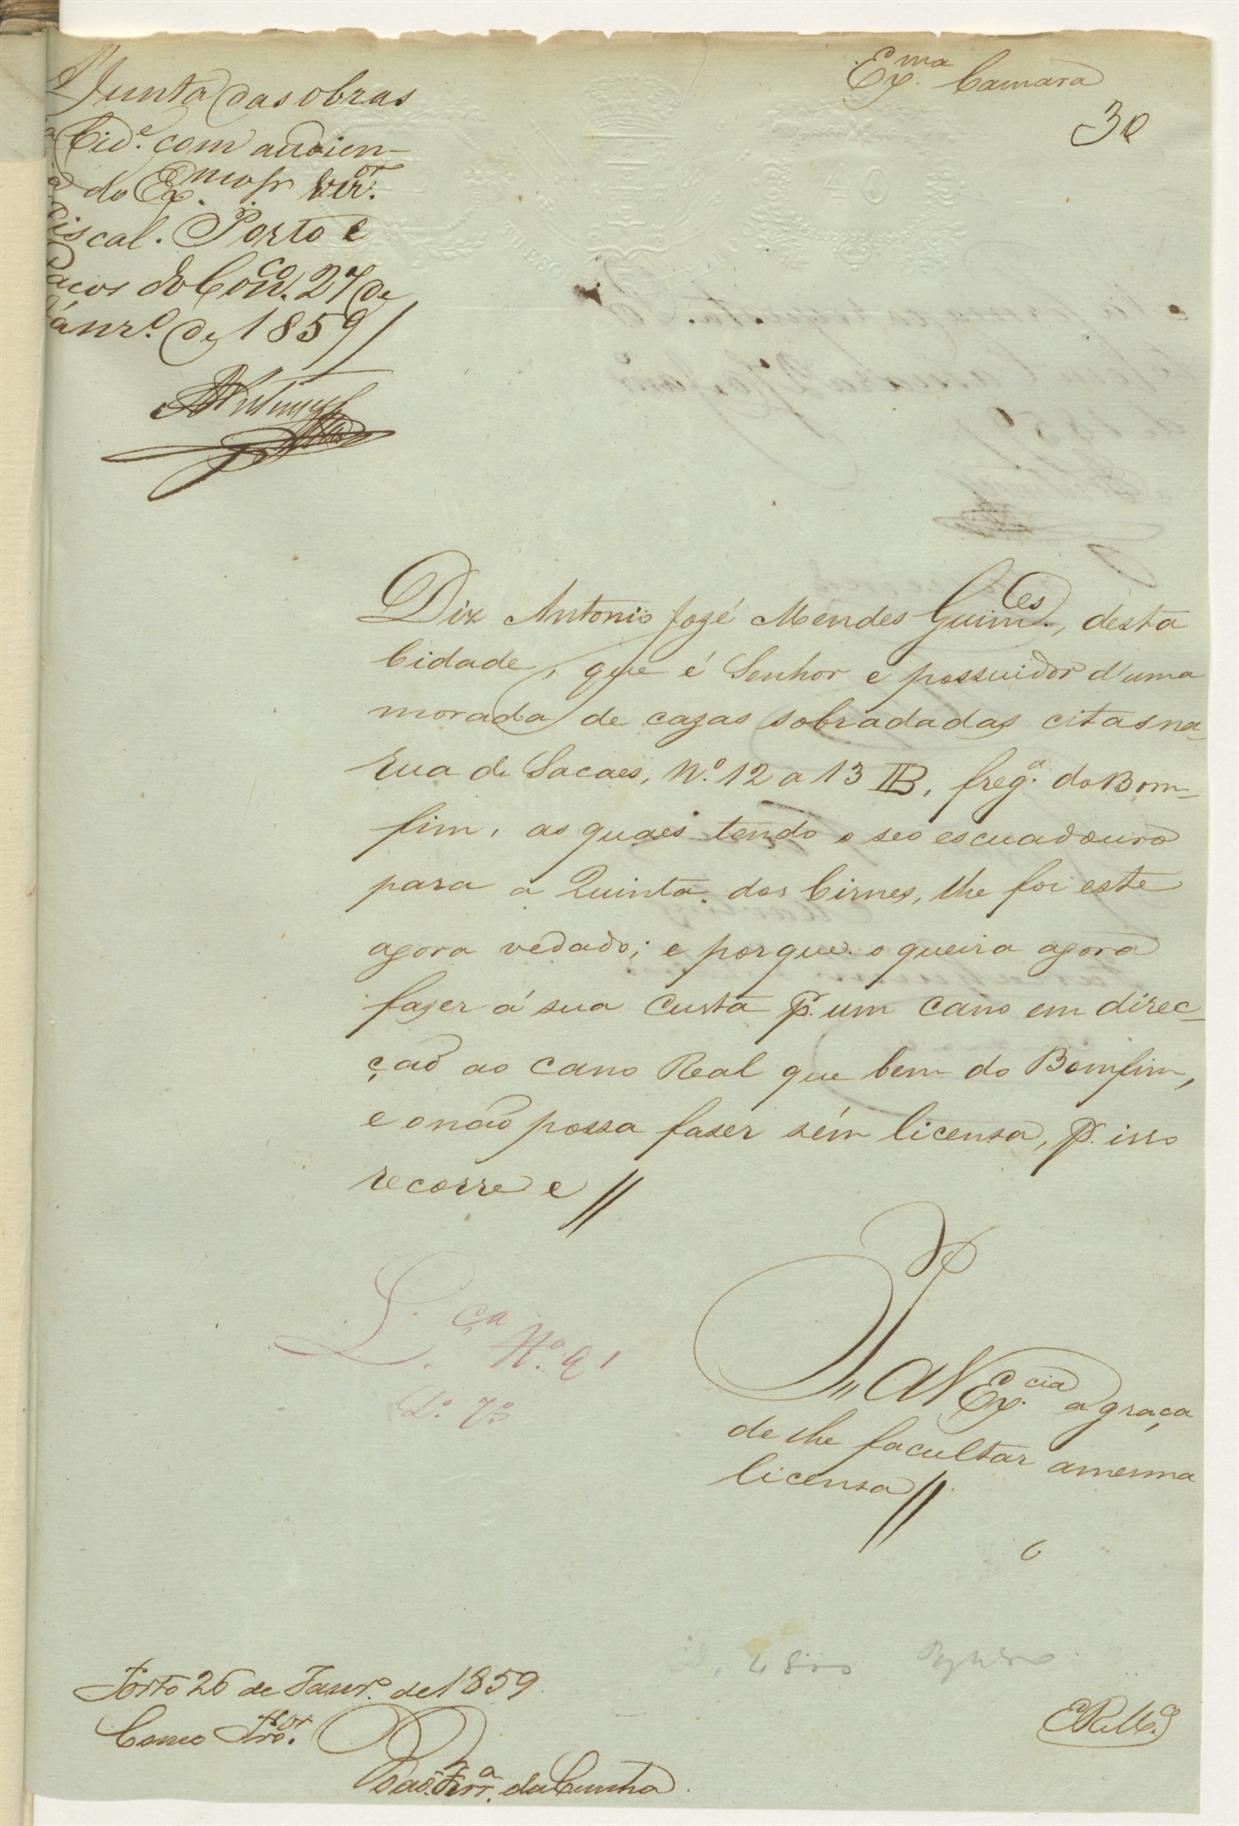 Exma. Camara
30
Á Junta das obras
Cide. com audien-
do Exmo Sr Ver.or
Fiscal. Porto e
Paços do Conco. 27 de
Janro. de 1859
Diz Antonio José Mendes Guimes., desta
Cidade, que é Senhor e possuidor d'uma
morada de cazas sobradadas citas na
Rua de Sacaes, N.o 12 a 13 B, freg.a do Bom-
fim, as quaes tendo o seo escuadouro
para a Quinta dos Cirnes, lhe foi este
agora vedado; e porque o queira agora
fazer á sua custa p. um cano em direc-
ção ao cano Real que bem do Bomfim,
e o não possa faser sém licensa, p. isso
recorre e //
P. a V Ex.cia a graça
de lhe facultar a mesma
licensa //
L.ça N.o 91
Porto 26 de Janr.o de 1859
Como Pro.or
Ferr.a da Cunha
E R Mce.